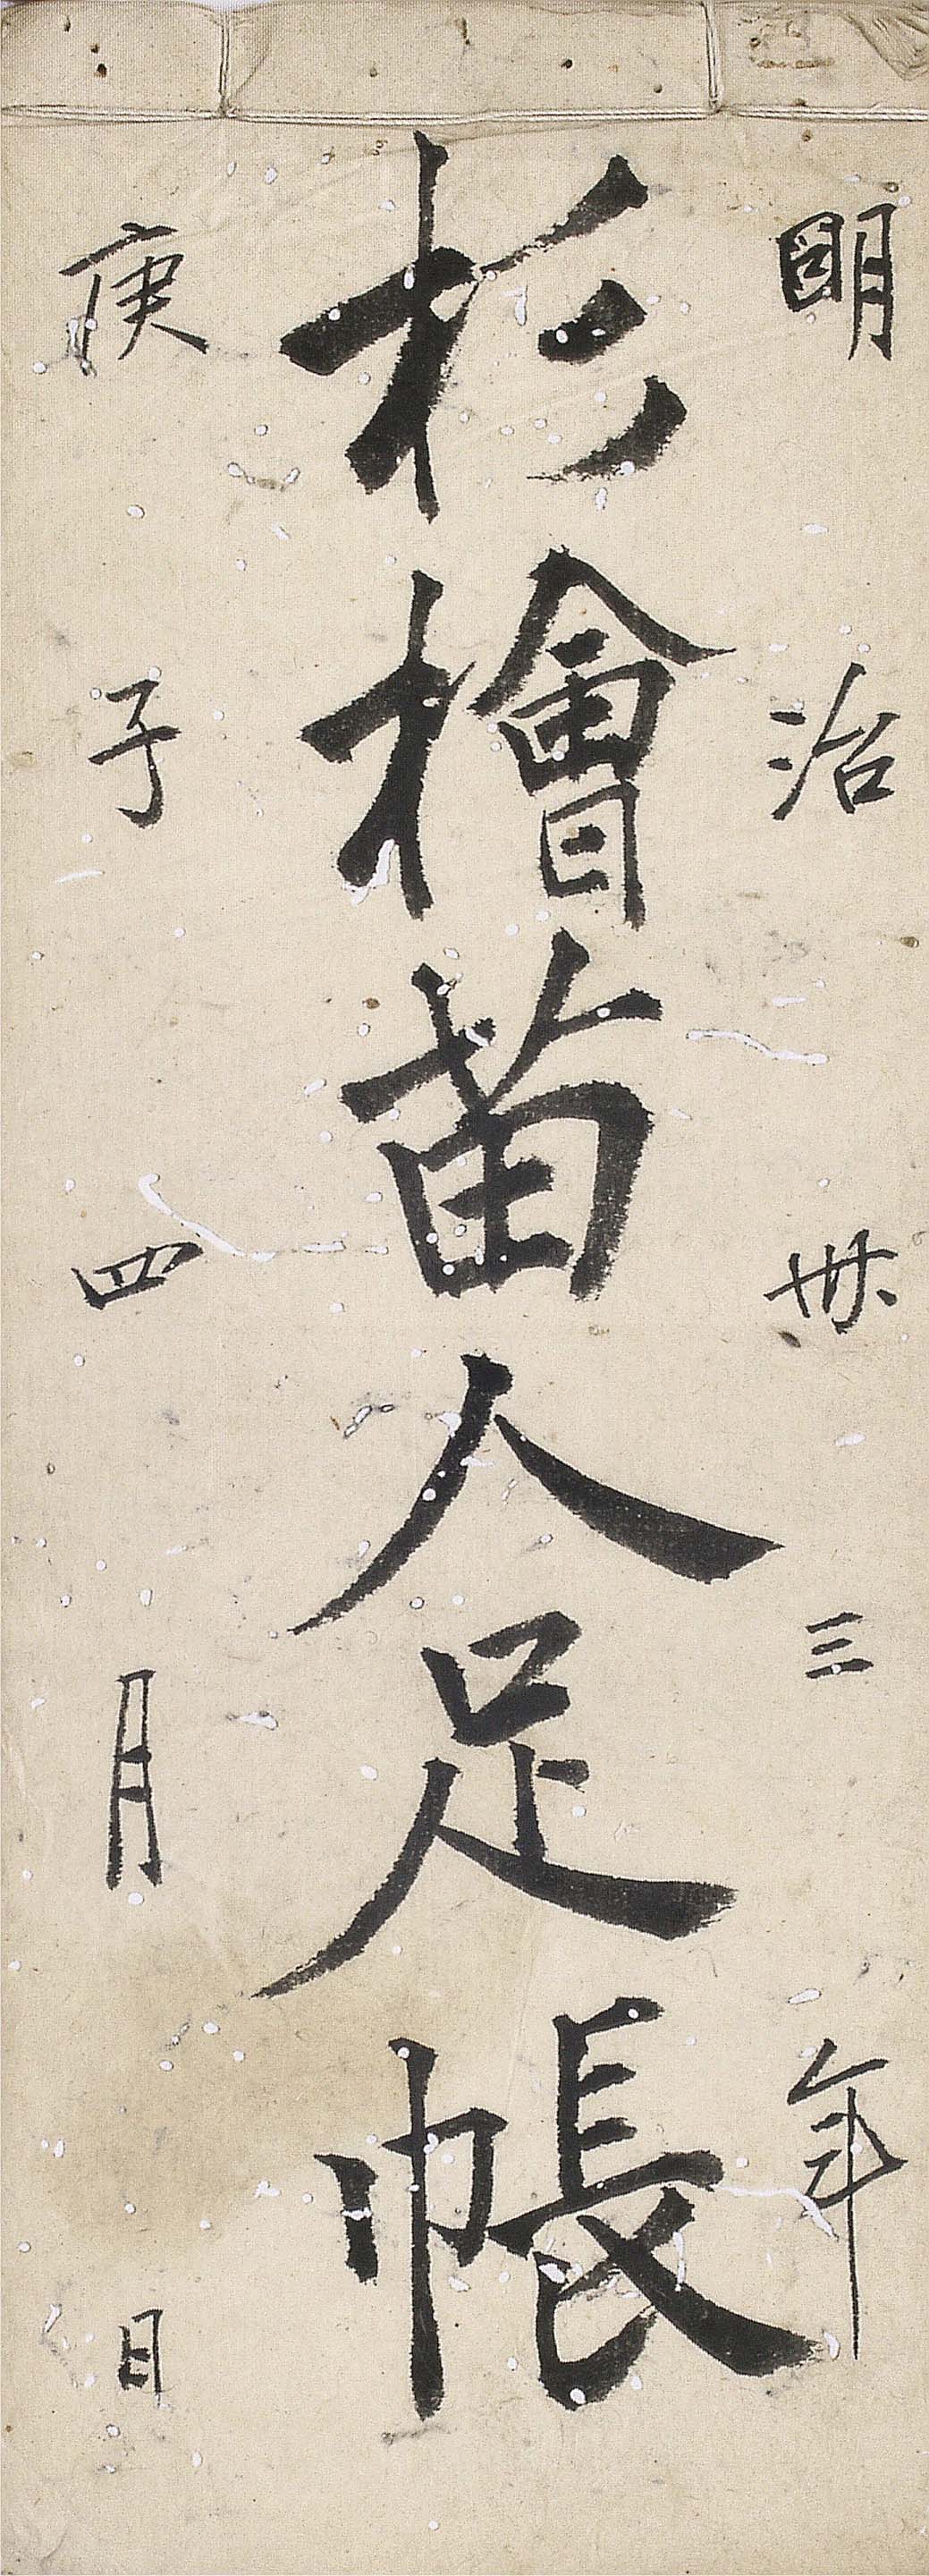 明治卅三年
杉檜苗人足帳
庚子四月日